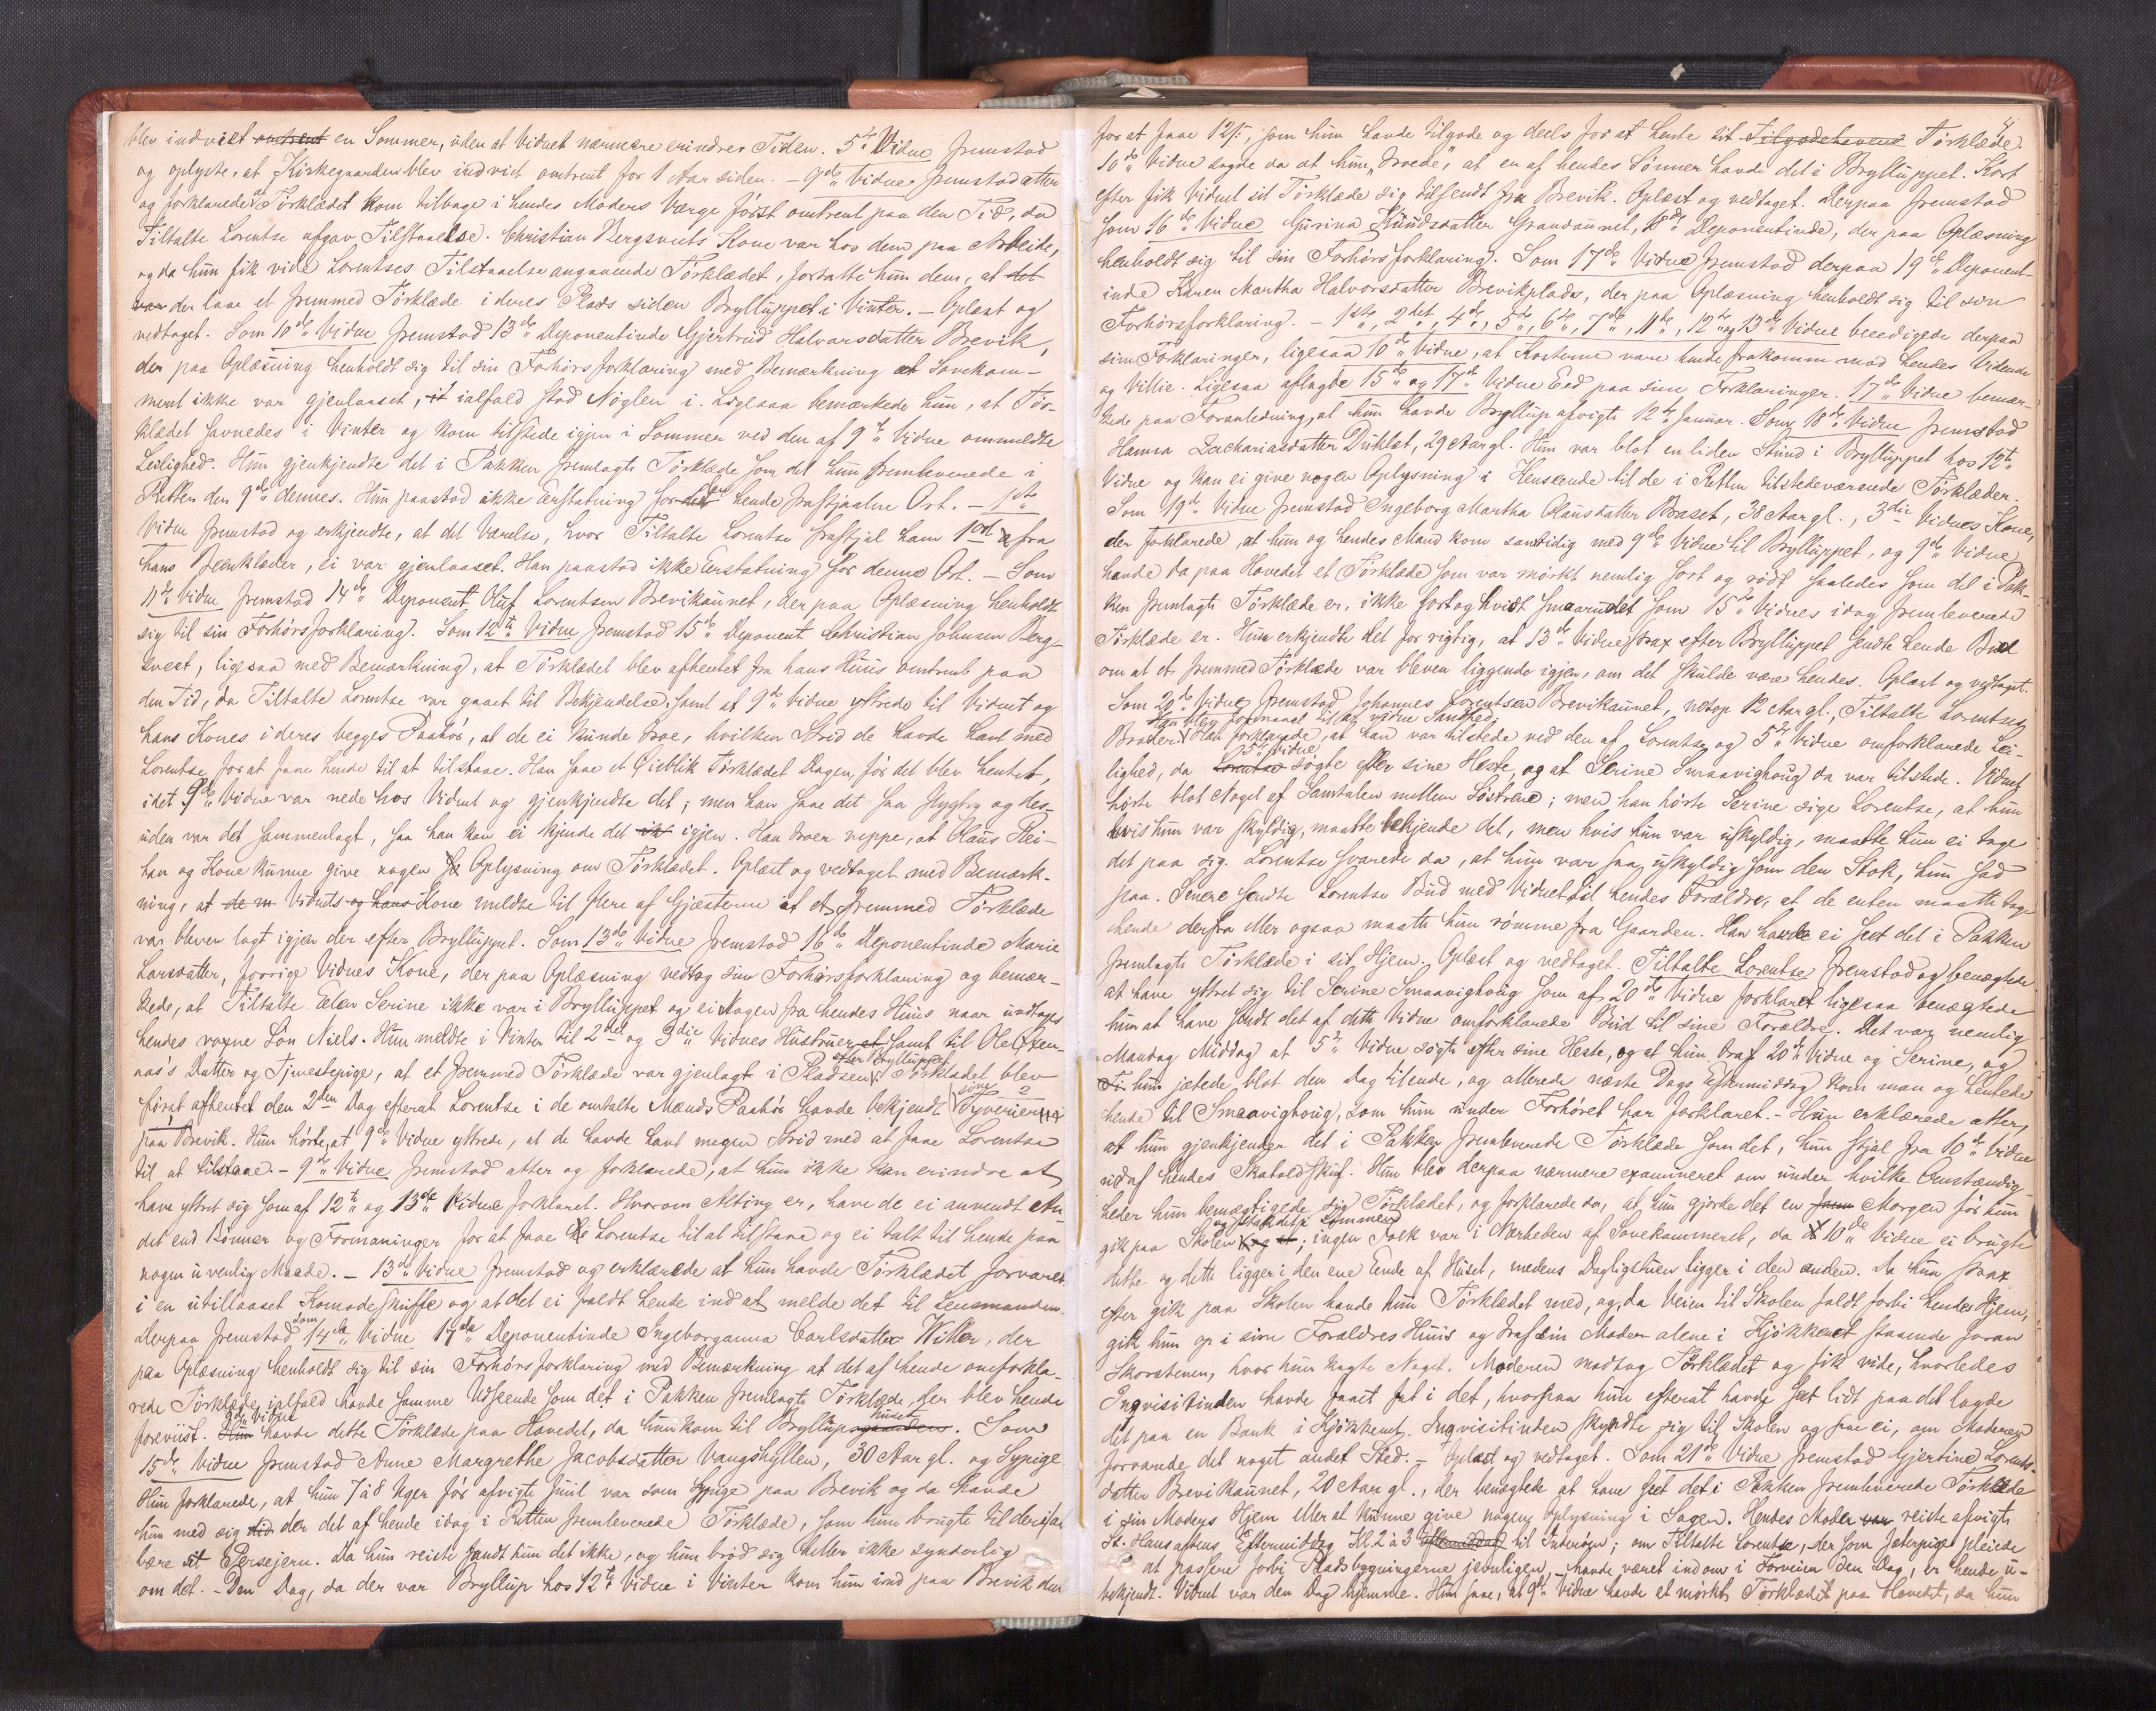 blev indviet omtrent en Sommer, uden at Vidnet nærmere erindrer Tiden. 5te Vidne fremstod
og oplyste, at Kirkegaarden blev indviet omtrent for 1 Aar siden. – 9de Vidne fremstod atter
og forklarede at Tørklædet kom tilbage i hendes Moders Værge først omtrent paa den Tid, da
Tiltalte Lorentse afgav Tilstaaelse. Christian Bergsvedts Kone var hos dem paa Arbeide,
og da hun fik vide Lorentses Tilstaaelse angaaende Tørklædet, fortalte hun dem, at det
var der laae et fremmed Tørklæde i deres Plads siden Brylluppet i Vinter. – Oplæst og
vedtaget. Som 10de Vidne fremstod 13de Deponentinde Gjertrud Halvorsdatter Brevik,
der paa Oplæsning henholdt sig til sin Forhørsforklaring med Bemærkning at Sovekam-
meret ikke var gjenlaaset, it ialfald stod Nøglen i. Ligesaa bemærkede hun, at Tør-
klædet savnedes i Vinter og kom tilstede igjen i Sommer ved den af 9de Vidne ommeldte
Leilighed. Hun gjenkjendte det i Pakken fremlagte Tørklæde som det hun fremleverede i
Retten den 9de dennes. Hun paastod ikke Erstatning for det hende frastjaalne Ort. – 1ste
Vidne fremstod og erkjendte, at det Værelse, hvor Tiltalte Lorentse frastjal ham 1 Ort fra
hans Beenklæder, ei var gjenlaaset. Han paastod ikke Erstatning for denne Ort. – Som
11te Vidne fremstod 14de Deponent Oluf Lorentsen Brevikaunet, der paa Oplæsning henholdt
sig til sin Forhørsforklaring. Som 12te Vidne fremstod 15de Deponent Christian Johnsen Berg-
svedt, ligesaa med Bemærkning, at Tørklædet blev afhentet fra hans Huus omtrent paa
den Tid, da Tiltalte Lorentse var gaaet til Bekjendelse, samt at 9de Vidne yttrede til Vidnet og
hans Kones i deres begges Paahør, at de ei kunde troe, hvilken Strid de havde havt med
Lorentse for at faae hende til at tilstaae. Han saae et Øieblik Tørklædet Dagen, før det blev hentet,
idet 9de Vidne var nede hos Vidnet og gjenkjendte det; men han saae det saa flygtig og des-
uden var det sammenlagt, saa han kan ei kjende det ik igjen. Han troer neppe, at Olaus Rei-
han og Kone kunne give nogen Oplysning om Tørklædet. Oplæst og vedtaget med Bemærk-
ning, at de m Vidnets og hans Kone meldte til flere af Gjæsterne at et fremmed Tørklæde
var bleven lagt igjen der efter Brylluppet. Som 13de Vidne fremstod 16de Deponentinde Marie
Larsdatter, forrige Vidnes Kone, der paa Oplæsning vedtog sin Forhørsforklaring og bemær-
kede, at Tiltalte Elen Serine ikke var i Brylluppet og ei Nogen fra hendes Huus naar undtages
hendes voxne Søn Niels. Hun meldte i Vinter til 2det og 3die Vidnes Hustruer at samt til Ole Øxen-
aas's Datter og Tjenestepige, at et fremmed Tørklæde var gjenlagt i Pladsen efter Brylluppet. Tørklædet blev
først afhentet den 2den Dag efterat Lorentse i de omtalte Mænds Paahør havde bekjendt sine Tyverier
paa Brevik. Hun hørte, at 9de Vidne yttrede, at de havde havt megen Strid med at faae Lorentse
til at tilstaae. – 9de Vidne fremstod atter og forklarede, at hun ikke kan erindre at
have yttret sig som af 12te og 13de Vidne forklaret. Hvorom Alting er, have de ei anvendt An-
det end Bønner og Formaninger for at faae Lorentse til at tilstaae og ei talt til hende paa
nogen uvenlig Maade. – 13de Vidne fremstod og erklærede at hun havde Tørklædet forvaret
i en utillaaset Komodeskuffe og at det ei faldt hende ind at melde det til Lensmanden.
Derpaa fremstod som 14de Vidne 17de Deponentinde Ingeborganna Carlsdatter Willer, der
paa Oplæsning henholdt sig til sin Forhørsforklaring med Bemærkning at det af hende omforkla-
rede Tørklæde ialfald havde samme Udseende som det i Pakken fremlagte Tørklæde, der blev hende
foreviist. Hun 9de Vidne havde dette Tørklæde paa Hovedet, da hun kom til Bryllupsgaarden huset. Som
15de Vidne fremstod Anne Margrethe Jacobsdatter Vangshyllen, 30 Aar gl. og Sypige.
Hun forklarede, at hun 7 à 8 Uger før afvigte Juul var som Sypige paa Brevik og da havde
hun med sig did der det af hende idag i Retten fremleverede Tørklæde, som hun brugte til deri at
bære sit Persejern. Da hun reiste fandt hun det ikke, og hun brød sig heller ikke synderlig
om det. – Den Dag, da der var Bryllup hos 12te Vidne i Vinter kom hun ind paa Brevik den
4
for at faae 12 s, som hun havde tilgode og deels for at hente sit Tilgodehavend Tørklæde.
10de Vidne sagde da at hun "troede", at en af hendes Sønner havde det i Brylluppet. Kort
efter fik Vidnet sit Tørklæde sig tilsendt fra Brevik. Oplæst og vedtaget. Derpaa fremstod
som 16de Vidne Gurina Knudsdatter Granaunet, 18de Deponentinde, der paa Oplæsning
henholdt sig til sin Forhørsforklaring. Som 17de Vidne fremstod derpaa 19de Deponent-
inde Karen Martha Halvorsdatter Brevikplads, der paa Oplæsning henholdt sig til sin
Forhørsforklaring. – 1ste, 2det, 4de, 5te, 6te, 7de, 11te, 12te og 13de Vidne beedigede derpaa
sine Forklaringer, ligesaa 10de Vidne, at Kosterne vare hende frakomne mod hendes Vidende
og Villie. Ligesaa aflagde 15de og 17de Vidne Eed paa sine Forklaringer. 17de Vidne bemær-
kede paa Foranledning, at hun havde Bryllup afvigte 12te Januar. Som 18de Vidne fremstod
Hanna Zachariasdatter Duklæt, 29 Aar gl. Hun var blot en liden Stund i Brylluppet hos 12te
Vidne og kan ei give nogen Oplysning i Henseende til de i Retten tilstedeværende Tørklæder.
Som 19de Vidne fremstod Ingeborg Martha Olausdatter Braset, 38 Aar gl., 3die Vidnes Kone,
der forklarede, at hun og hendes Mand kom samtidig med 9de Vidne til Brylluppet, og 9de Vidne
havde da paa Hovedet et Tørklæde som var mørkt nemlig sort og rødt saaledes som det i Pak-
ken fremlagte Tørklæde er, ikke sort og hvidt smaarudet som 15de Vidnes idag fremleverede
Tørklæde er. Hun erkjendte det for rigtig, at 13de Vidne strax efter Brylluppet sendte hende Bud
om at et fremmed Tørklæde var bleven liggende igjen, om det skulde være hendes. Oplæst og vedtaget.
Som 20de Vidne fremstod Johannes Lorentsen Brevikaunet, netop 12 Aar gl., Tiltalte Lorentses
Broder. Han blev formanet til at vidne Sandhed. Han forklarede, at han var tilstede ved den af Lorentse og 5te Vidne omforklarede Lei-
lighed, da Lorentse 5te Vidne søgte efter sine Heste, og at Serine Smaavighoug da var tilstede. Vidnet
hørte blot Noget af Samtalen mellem Søstrene; men han hørte Serine sige Lorentse, at hun
hvis hun var skyldig, maatte bekjende det, men hvis hun var uskyldig, maatte hun ei tage
det paa sig. Lorentse svarede da, at hun var saa uskyldig som den Stok, hun sad
paa. Senere sendte Lorentse Bud med Vidnet til hendes Forældre, at de enten maatte tage
hende derfra eller ogsaa maatte hun rømme fra Gaarden. Han havde ei seet det i Pakken
fremlagte Tørklæde i sit Hjem. Oplæst og vedtaget. Tiltalte Lorentse fremstod og benægtede
at have yttret sig til Serine Smaavighoug som af 20de Vidne forklaret ligesaa benægtede
hun at have sendt det af dette Vidne omforklarede Bud til sine Forældre. Det var nemlig
Mandag Middag at 5te Vidne søgte efter sine Heste, og at hun traf 20de Vidne og Serine, og
Ti hun jætede blot den Dag tilende, og allerede næste Dags Eftermiddag kom man og hentede
hende til Smaavighoug, som hun under Forhøret har forklaret. – Hun erklærede atter,
at hun gjenkjender det i Pakken fremleverede Tørklæde som det, hun stjal fra 10de Vidne
ud af hendes Skatolskuf. Hun blev derpaa nærmere examineret om under hvilke Omstændig-
heder hun bemægtigede sig Tørklædet, og forklarede da, at hun gjorde det en Morgen før hun
gik paa Skolen og stak det i Lommen; ingen Folk var i Nærheden af Sovekammeret, da 10de Vidne ei brugte
dette og dette ligger i den ene Ende af Huset, medens Dagligstuen ligger i den anden. Da hun strax
efter gik paa Skolen havde hun Tørklædet med, og, da Veien til Skolen faldt forbi hendes Hjem,
gik hun op i sine Forældres Huus og traf sin Moder alene i Kjøkkenet staaende foran
Skorstenen, hvor hun kogte Noget. Moderen modtog Tørklædet og fik vide, hvorledes
Inqvisitinden havde faaet fat i det, hvorpaa hun efterat havde seet lidt paa det lagde
det paa en Bænk i Kjøkkenet. Inqvisitinden skyndte sig til Skolen og saae ei, om Moderen
forvarede det noget andet Sted. – Oplæst og vedtaget. Som 21de Vidne fremstod Gjertine Lorents-
datter Brevikaunet, 20 Aar gl., der benægtede at have seet det i Pakken fremleverede Tørklæde
i sin Moders Hjem eller at kunne give nogen Oplysning i Sagen. Hendes Moder var reiste afvigte
St. Hansaftens Eftermiddag Kl. 2 à 3 Eftermiddag til Inderøen; om Tiltalte Lorentse, der som Jeterpige pleiede
at passere forbi Pladsbygningerne jevnligen, – havde været indom i Forveien den Dag, er hende u-
bekjendt. Vidnet var den Dag hjemme. Hun saae, at 9de Vidne havde et mørkt Tørklædet paa Hovedet, da hun